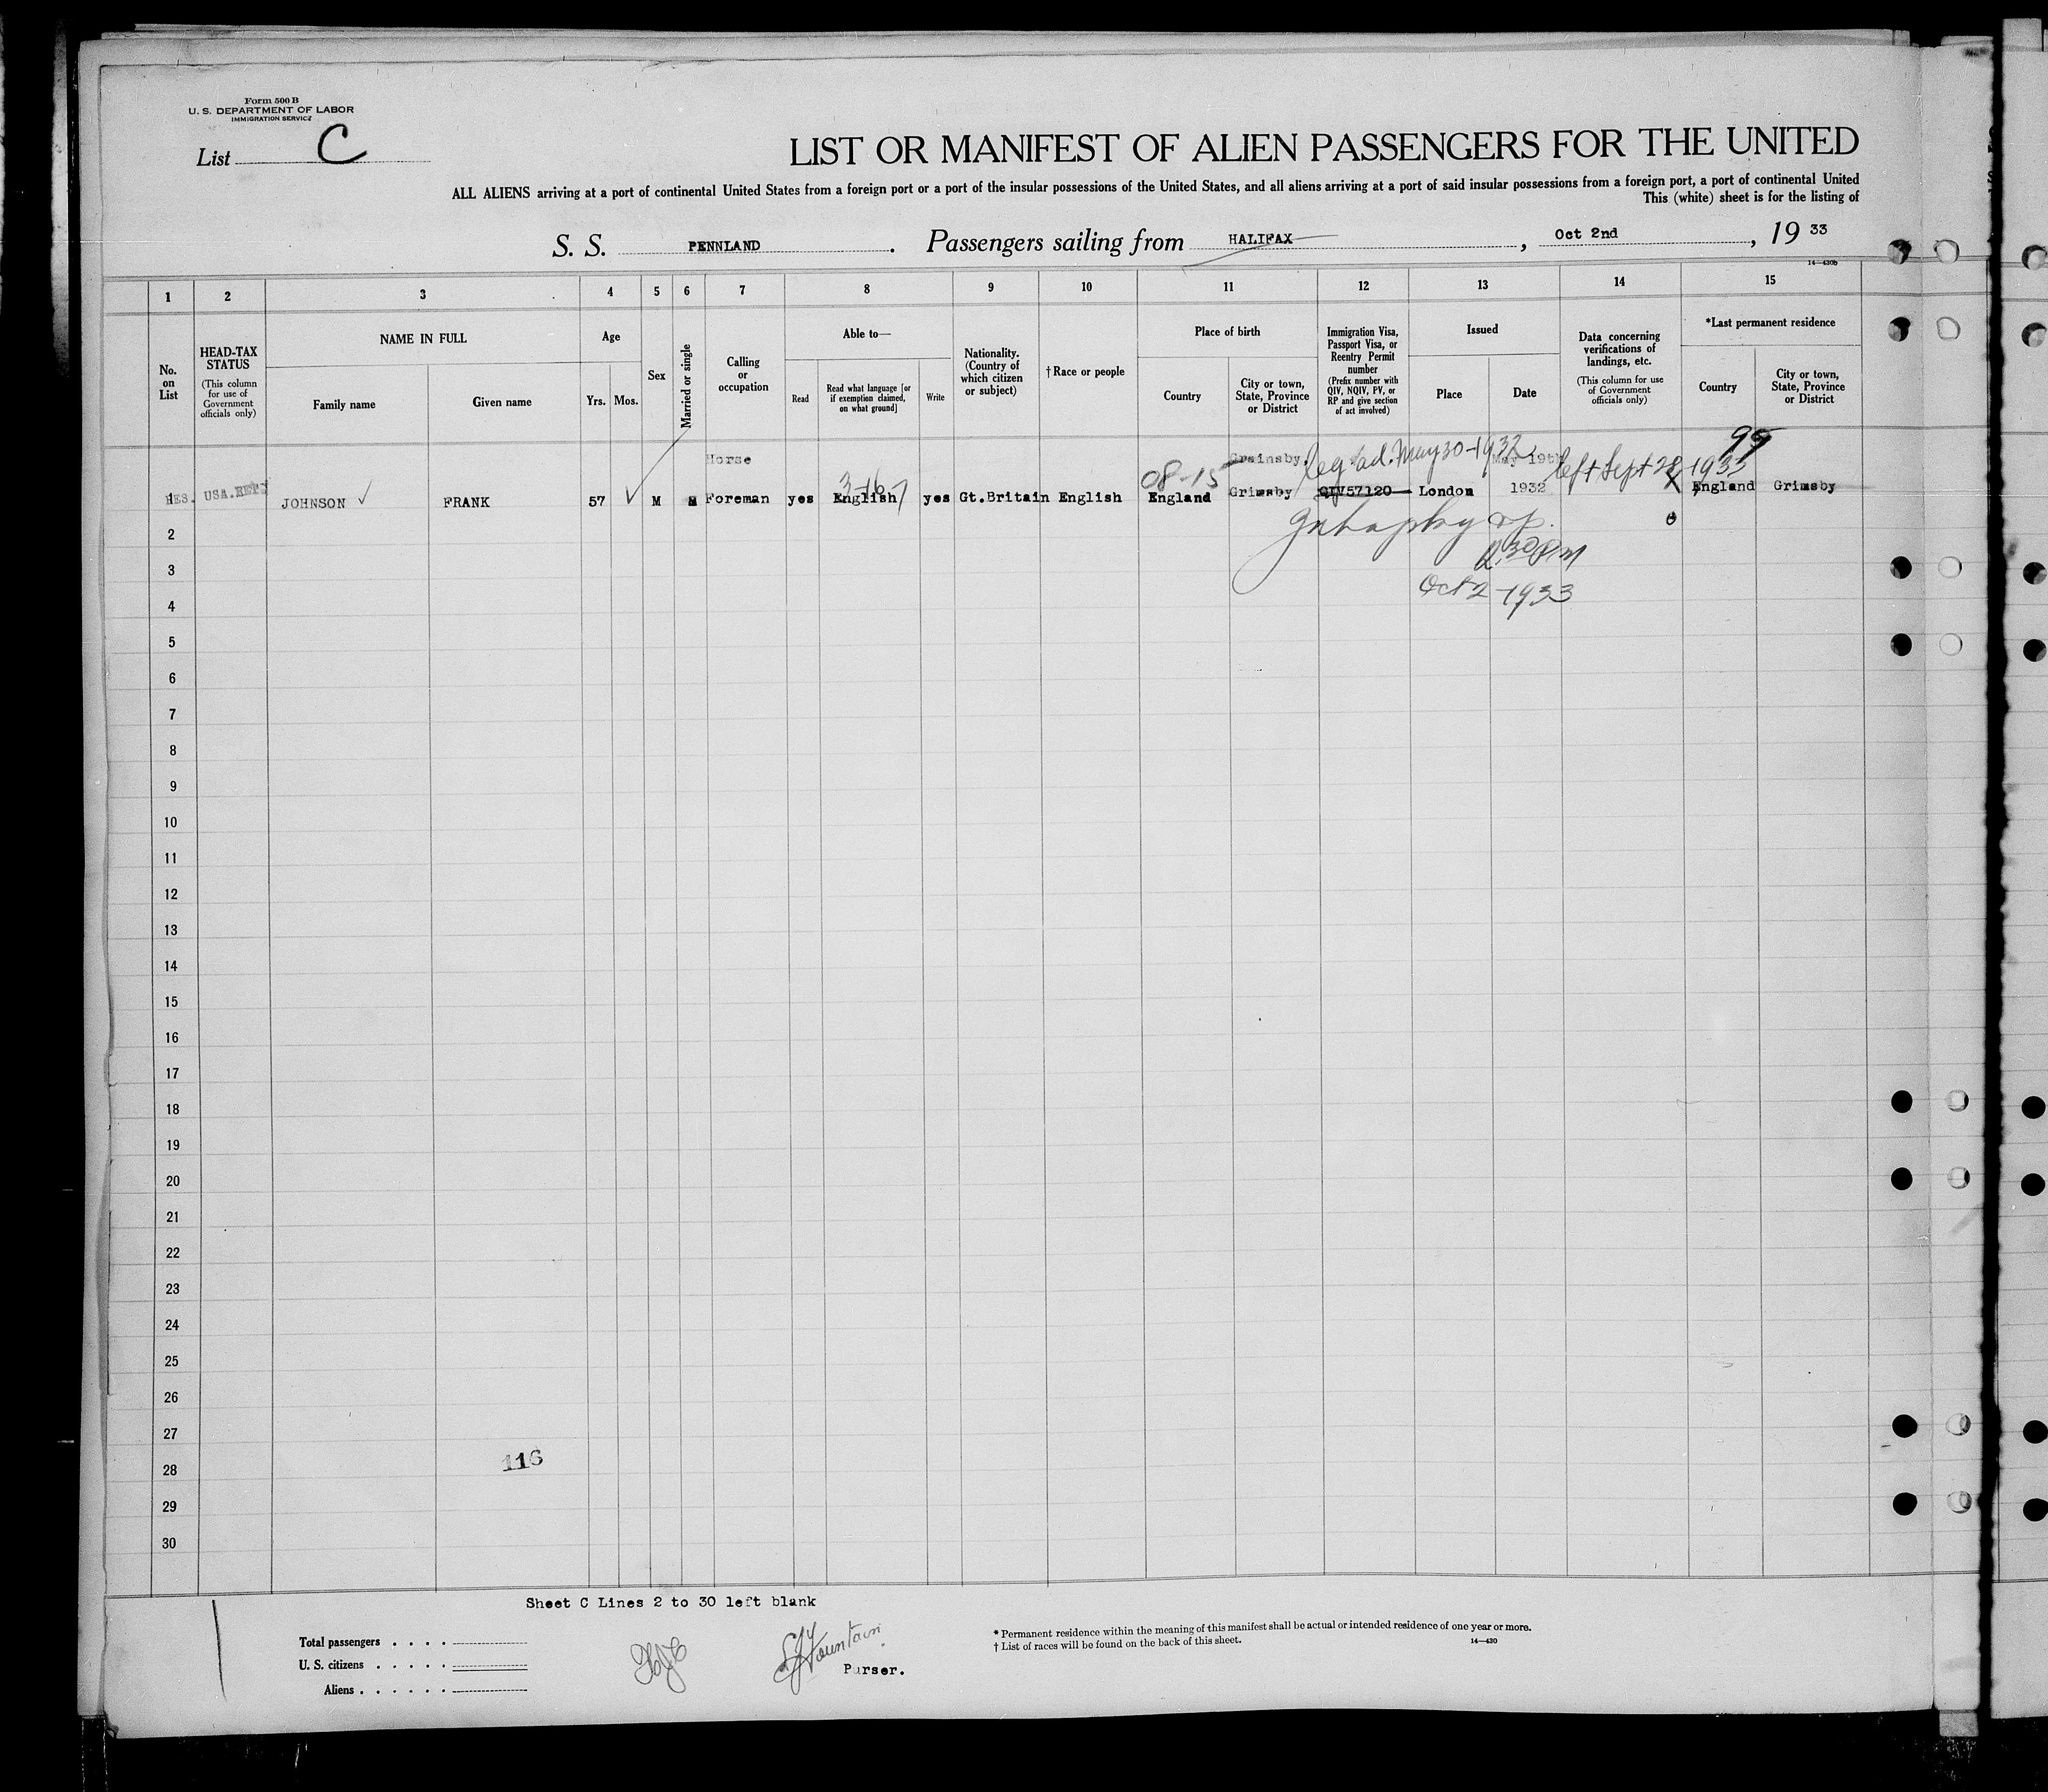 Form 500 B
U. S. DEPARTMENT OF LABOR
IMMIGRATION SERVICE
List C
LIST OR MANIFEST OF ALIEN PASSENGERS FOR THE UNITED
ALL ALIENS arriving at a port of continental United States from a foreign port or a port of the insular possessions of the United States, and all aliens arriving at a port of said insular possessions from a foreign port, a port of continental United
This (white) sheet is for the listing of
S. S. PENNLAND. Passengers sailing from HALIFAX, Oct 2nd, 19 33
14—430b
1 2 3 4 5 6 7 8 9 10 11 12 13 14 15
No. on List
HEAD-TAX STATUS
(This column for use of Government officials only)
NAME IN FULL
Family name
Given name
Age
Yrs. Mos.
Sex
Married or single
Calling or occupation
Able to—
Read
Read what language [or if exemption claimed, on what ground]
Write
Nationality. (Country of which citizen or subject)
† Race or people
Place of birth
Country
City or town, State, Province or District
Immigration Visa, Passport Visa, or Reentry Permit number
(Prefix number with QIV, NQIV, PV, or RP and give section of act involved)
Issued
Place
Date
Data concerning verifications of landings, etc.
(This column for use of Government officials only)
*Last permanent residence
Country
City or town, State, Province or District
99
Horse Grainsby, leg. ad. May 30-1932 May 19th left Sept 28, 1933
3-16-7 08-15
1 USA. JOHNSON FRANK 57 M M Foreman yes English yes Gt.Britain English England Grimsby QIV57120 London 1932 England Grimsby
2
3
2.30 PM
4 Oct 2-1933
5
6
7
8
9
10
11
12
13
14
15
16
17
18
19
20
21
22
23
24
25
26
27
28 116
29
30
Sheet C Lines 2 to 30 left blank
Total passengers . . . .
U. S. citizens . . . . .
Aliens . . . . . .
Purser.
* Permanent residence within the meaning of this manifest shall be actual or intended residence of one year or more.
† List of races will be found on the back of this sheet.
14—430